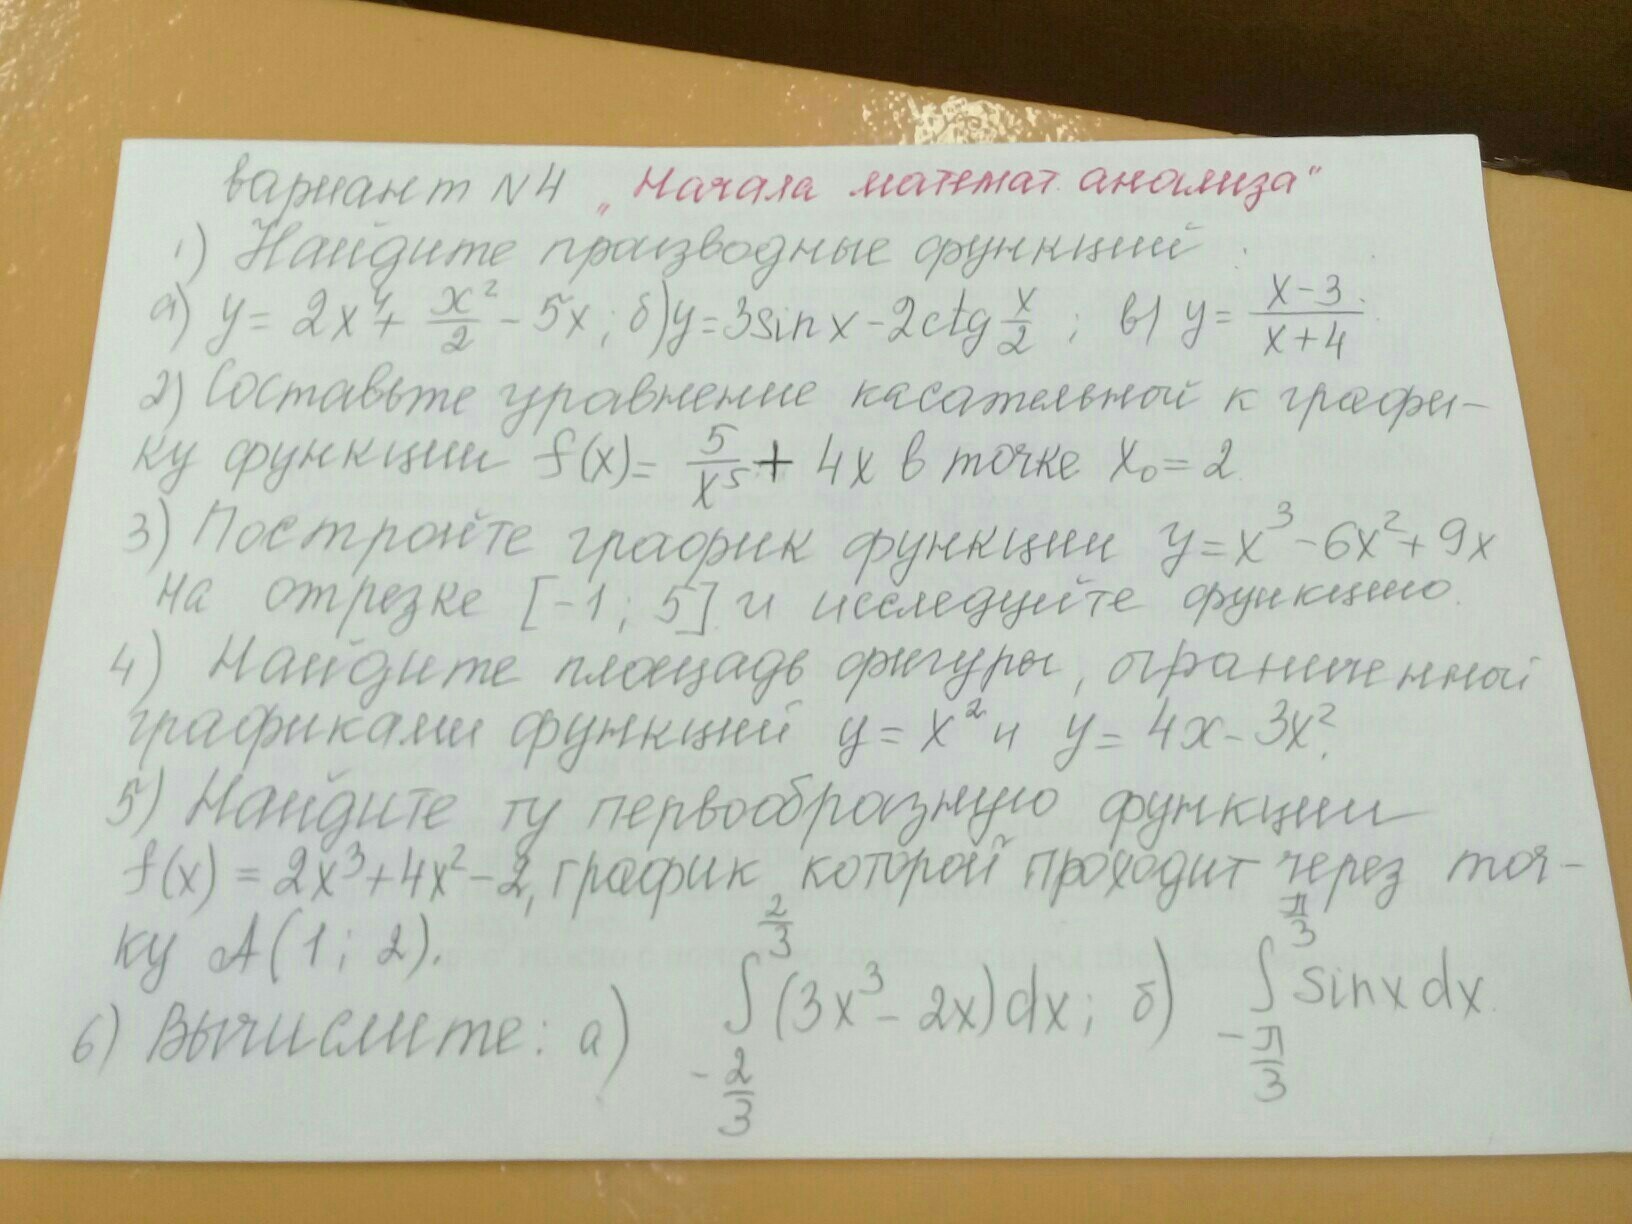 вариант N4 „Начала математ. анализа"
1) Найдите производные функций:
а) y = 2x⁴ + x²/2 - 5x; б) y = 3sin x - 2ctg x/2; в) y = (x-3)/(x+4)
2) Составьте уравнение касательной к графи-
ку функции f(x) = 5/x⁵ + 4x в точке x₀ = 2.
3) Постройте график функции y = x³ - 6x² + 9x
на отрезке [-1; 5] и исследуйте функцию.
4) Найдите площадь фигуры, ограниченной
графиками функций y = x² и y = 4x - 3x².
5) Найдите ту первообразную функции
f(x) = 2x³ + 4x² - 2, график которой проходит через точ-
ку A(1; 2).
6) Вычислите: а) ∫_{-2/3}^{2/3} (3x³ - 2x)dx; б) ∫_{-π/3}^{π/3} sinxdx.